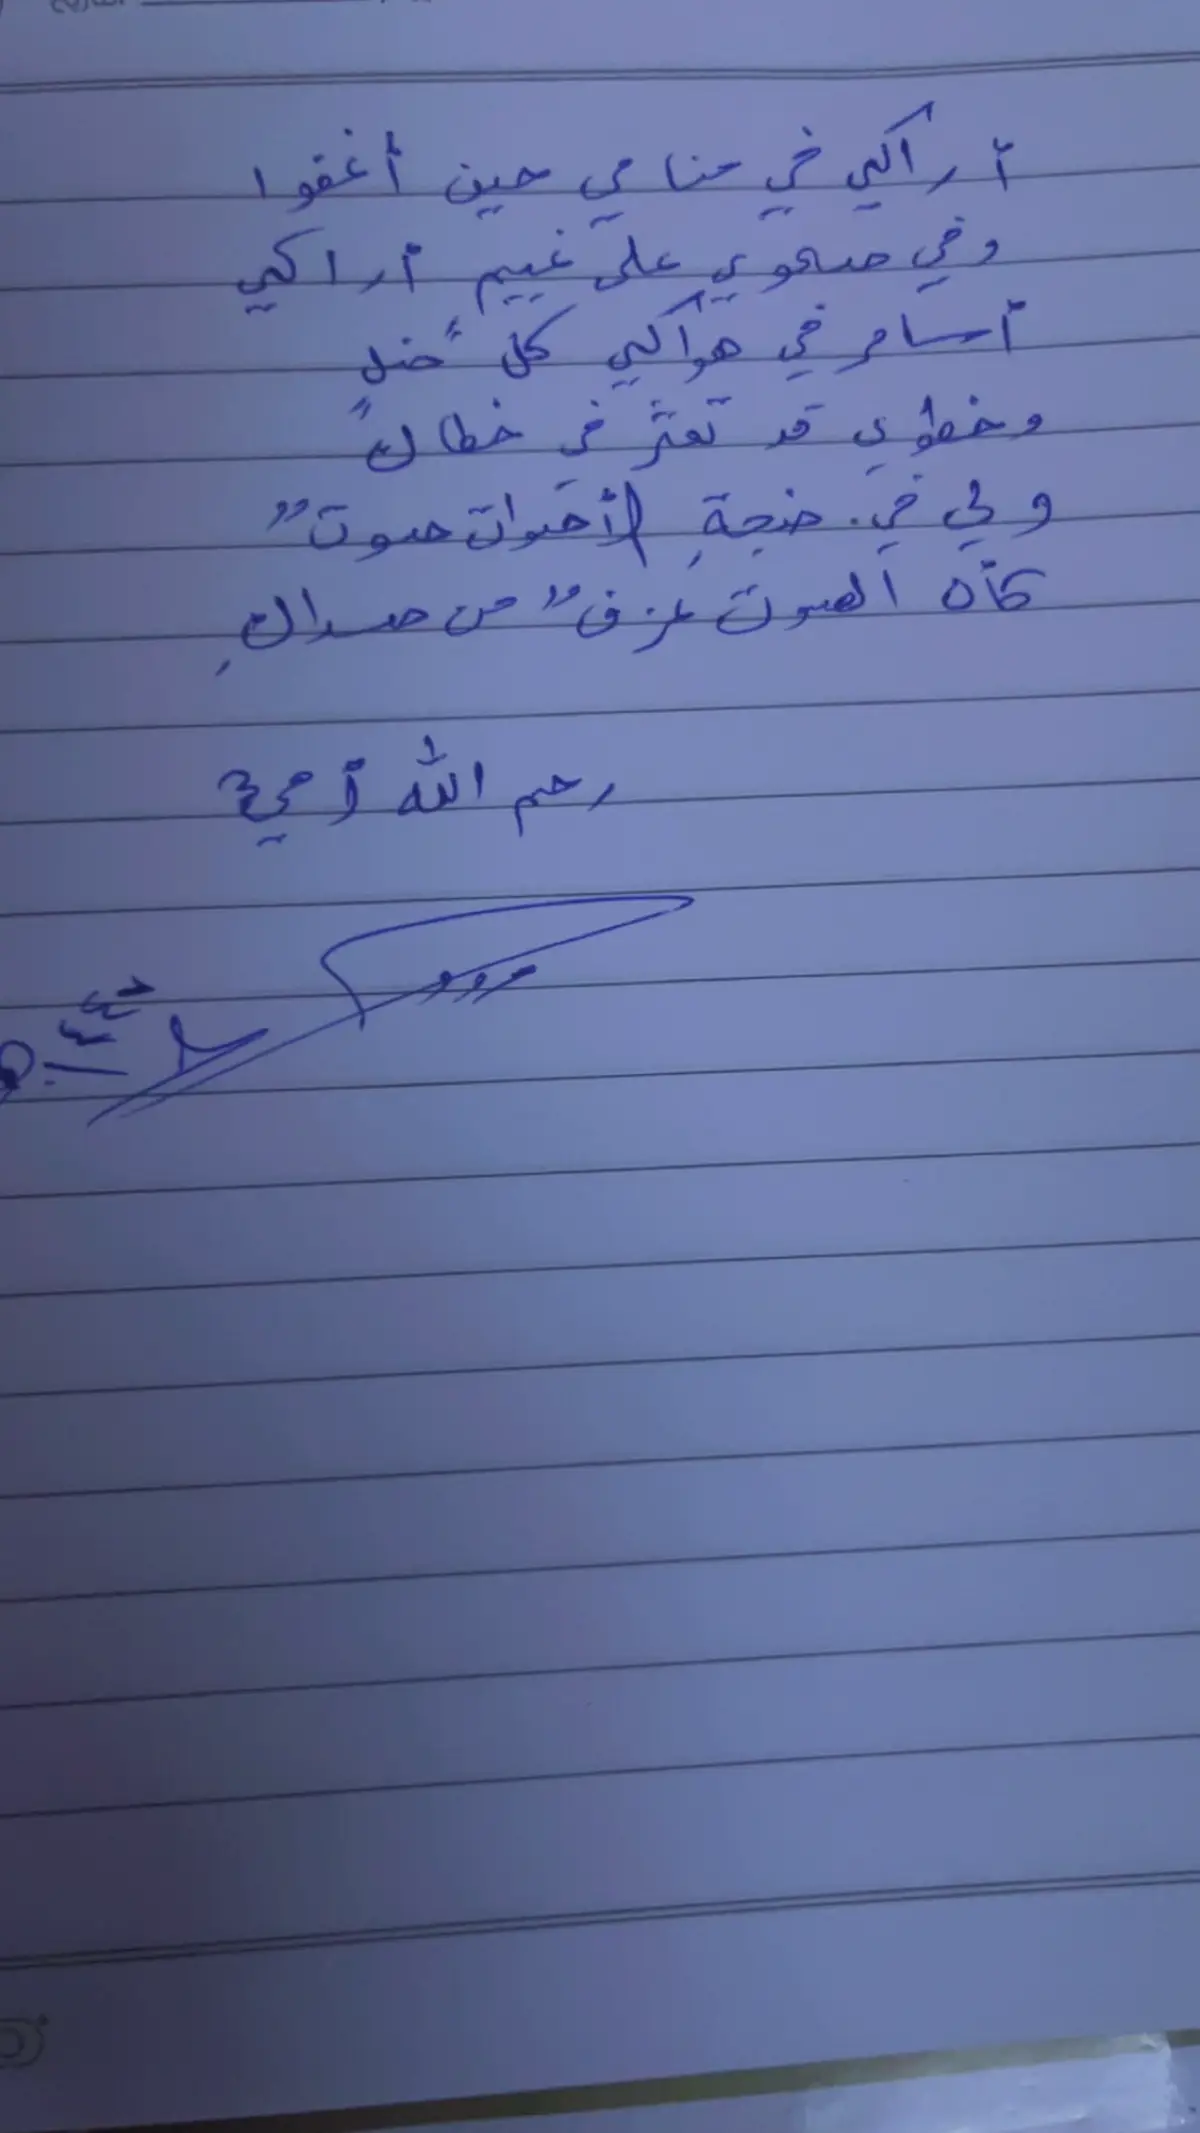 أراكي في منامي حين أغفوا
وفي صحوي على غييم أراكي
أسامر في هواكي كل ضلٍ
وخطوي قد تعثر في خطاكِ
ولي في ضجةِ الأصوات صوت"
كأن الصوت عزف" من صداكِ
رحم الله أمي